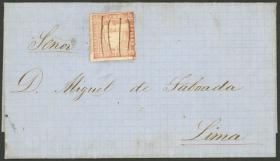 Señor
D. Miguel de Taboada
Lima